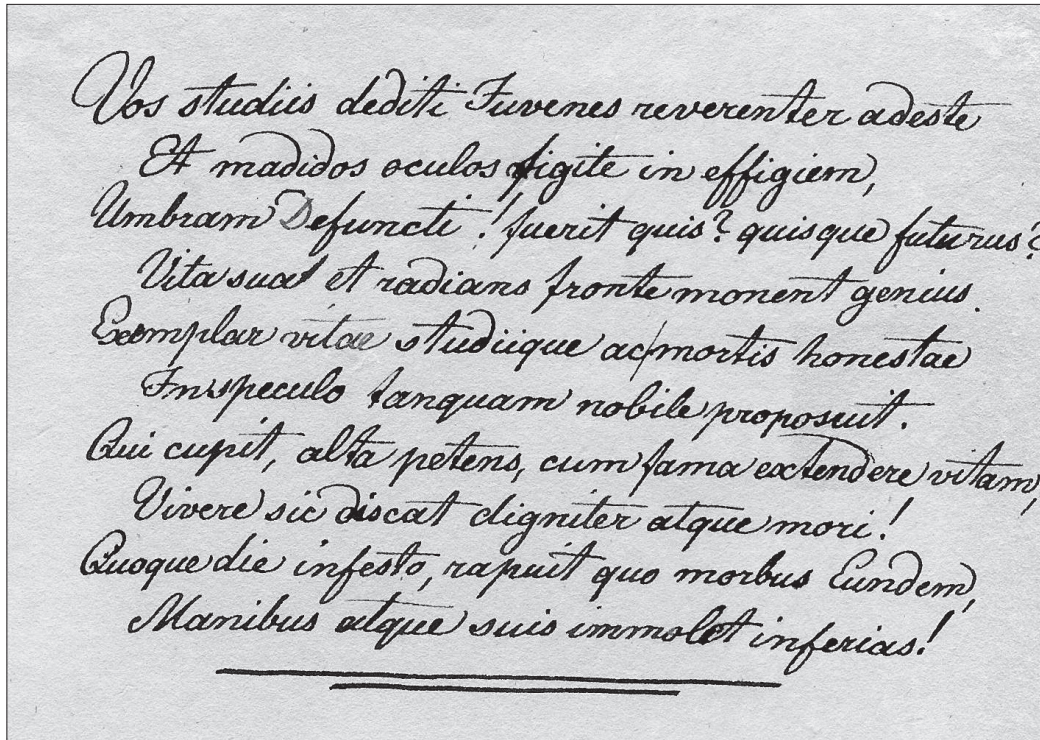 Vos studiis dediti Juvenes reverenter adeste
Et madidos oculos figite in effigiem,
Umbram Defuncti! fuerit quis? quisque futurus?
Vita sua et radians fronte monent genius.
Exemplar vitae studiique ac mortis honestae
In speculo tanquam nobile proposuit.
Qui cupit, alta petens, cum fama extendere vitam,
Vivere sic discat digniter atque mori!
Quoque die infesto, rapuit quo morbus Eundem,
Manibus atque suis immolet inferias!